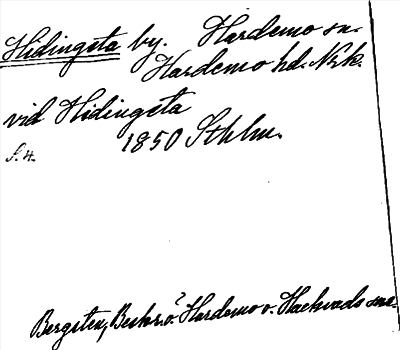 Hidingsta by. Hardemo sn.
Hardemo hd. Nrk.
vid Hidingsta
1850 Sthlm.
S. 4.
Bergsten, Beskr. o. Hardemo o. Hackvads sna.